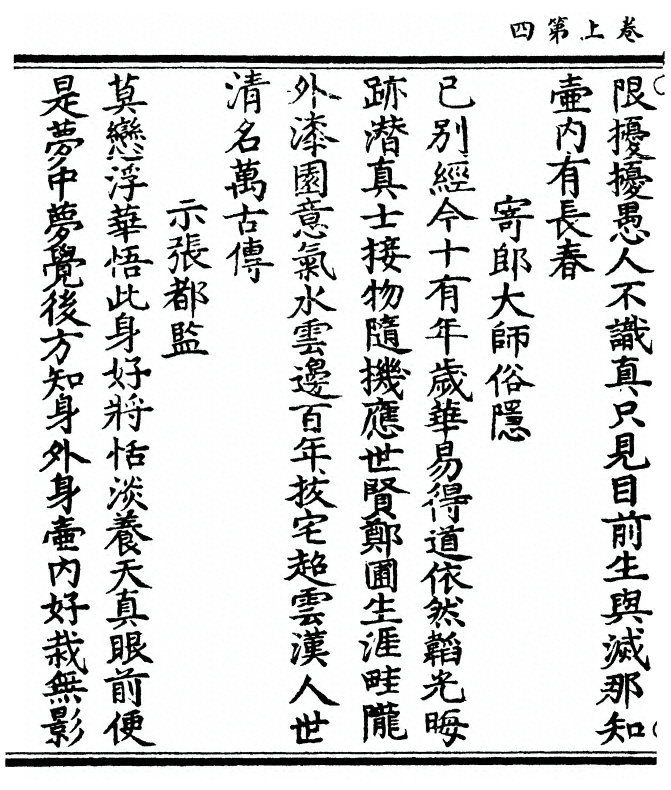 卷上第四
限擾擾愚人不識真只見目前生與滅那知
壷内有長春
寄郎大師俗隱
已別經今十有年歲華易得道依然韜光晦
跡潛真士接物隨機應世賢鄭圃生涯畦隴
外漆園意氣水雲邊百年拔宅超雲漢人世
清名萬古傳
示張都監
莫戀浮華悟此身好將恬淡養天真眼前便
是夢中夢覺後方知身外身壷内好栽無影